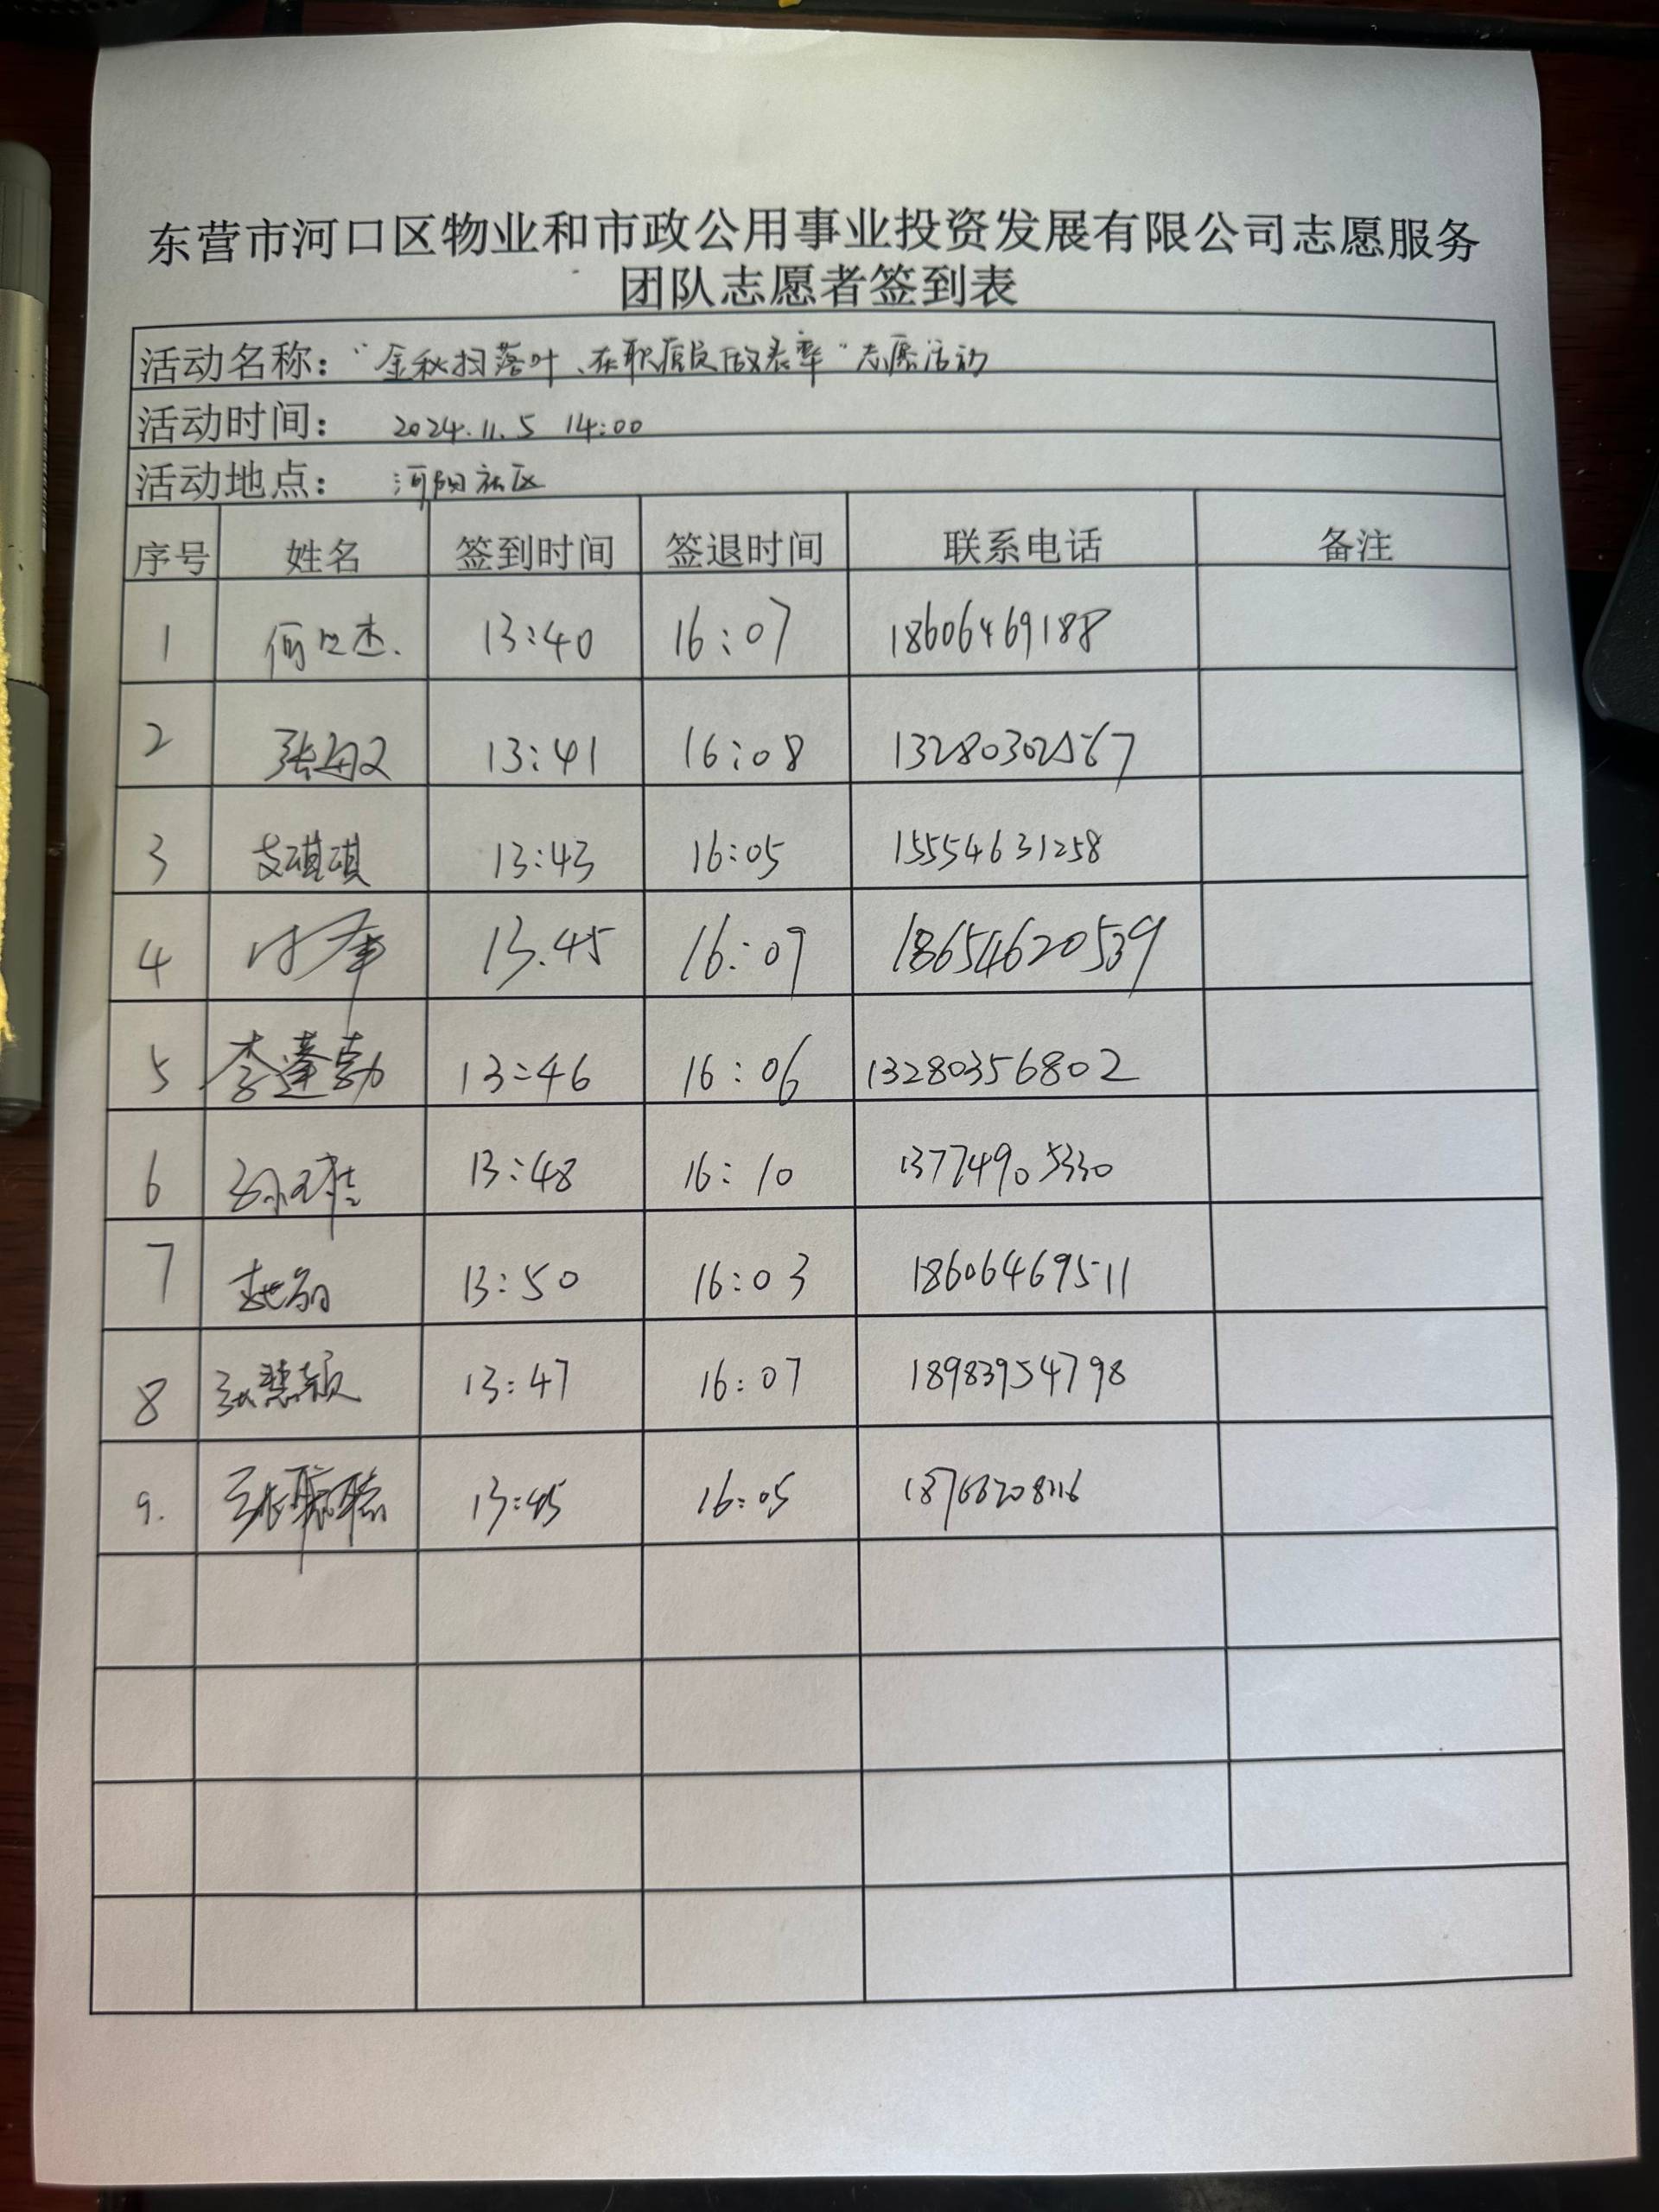 东营市河口区物业和市政公用事业投资发展有限公司志愿服务
团队志愿者签到表
活动名称：“金秋扫落叶、在职党员做表率”志愿活动
活动时间： 2024.11.5 14:00
活动地点： 河阳社区
序号 姓名 签到时间 签退时间 联系电话 备注
1 13:40 16:07 18606469188
2 13:41 16:08 13280302567
3 支琪琪 13:43 16:05 15554631258
4 13.45 16:09 18654620539
5 李蓬勃 13:46 16:06 13280356802
6 13:48 16:10 13774905330
7 13:50 16:03 18606469511
8 张慧颖 13:47 16:07 18983954798
9. 13:45 16:05